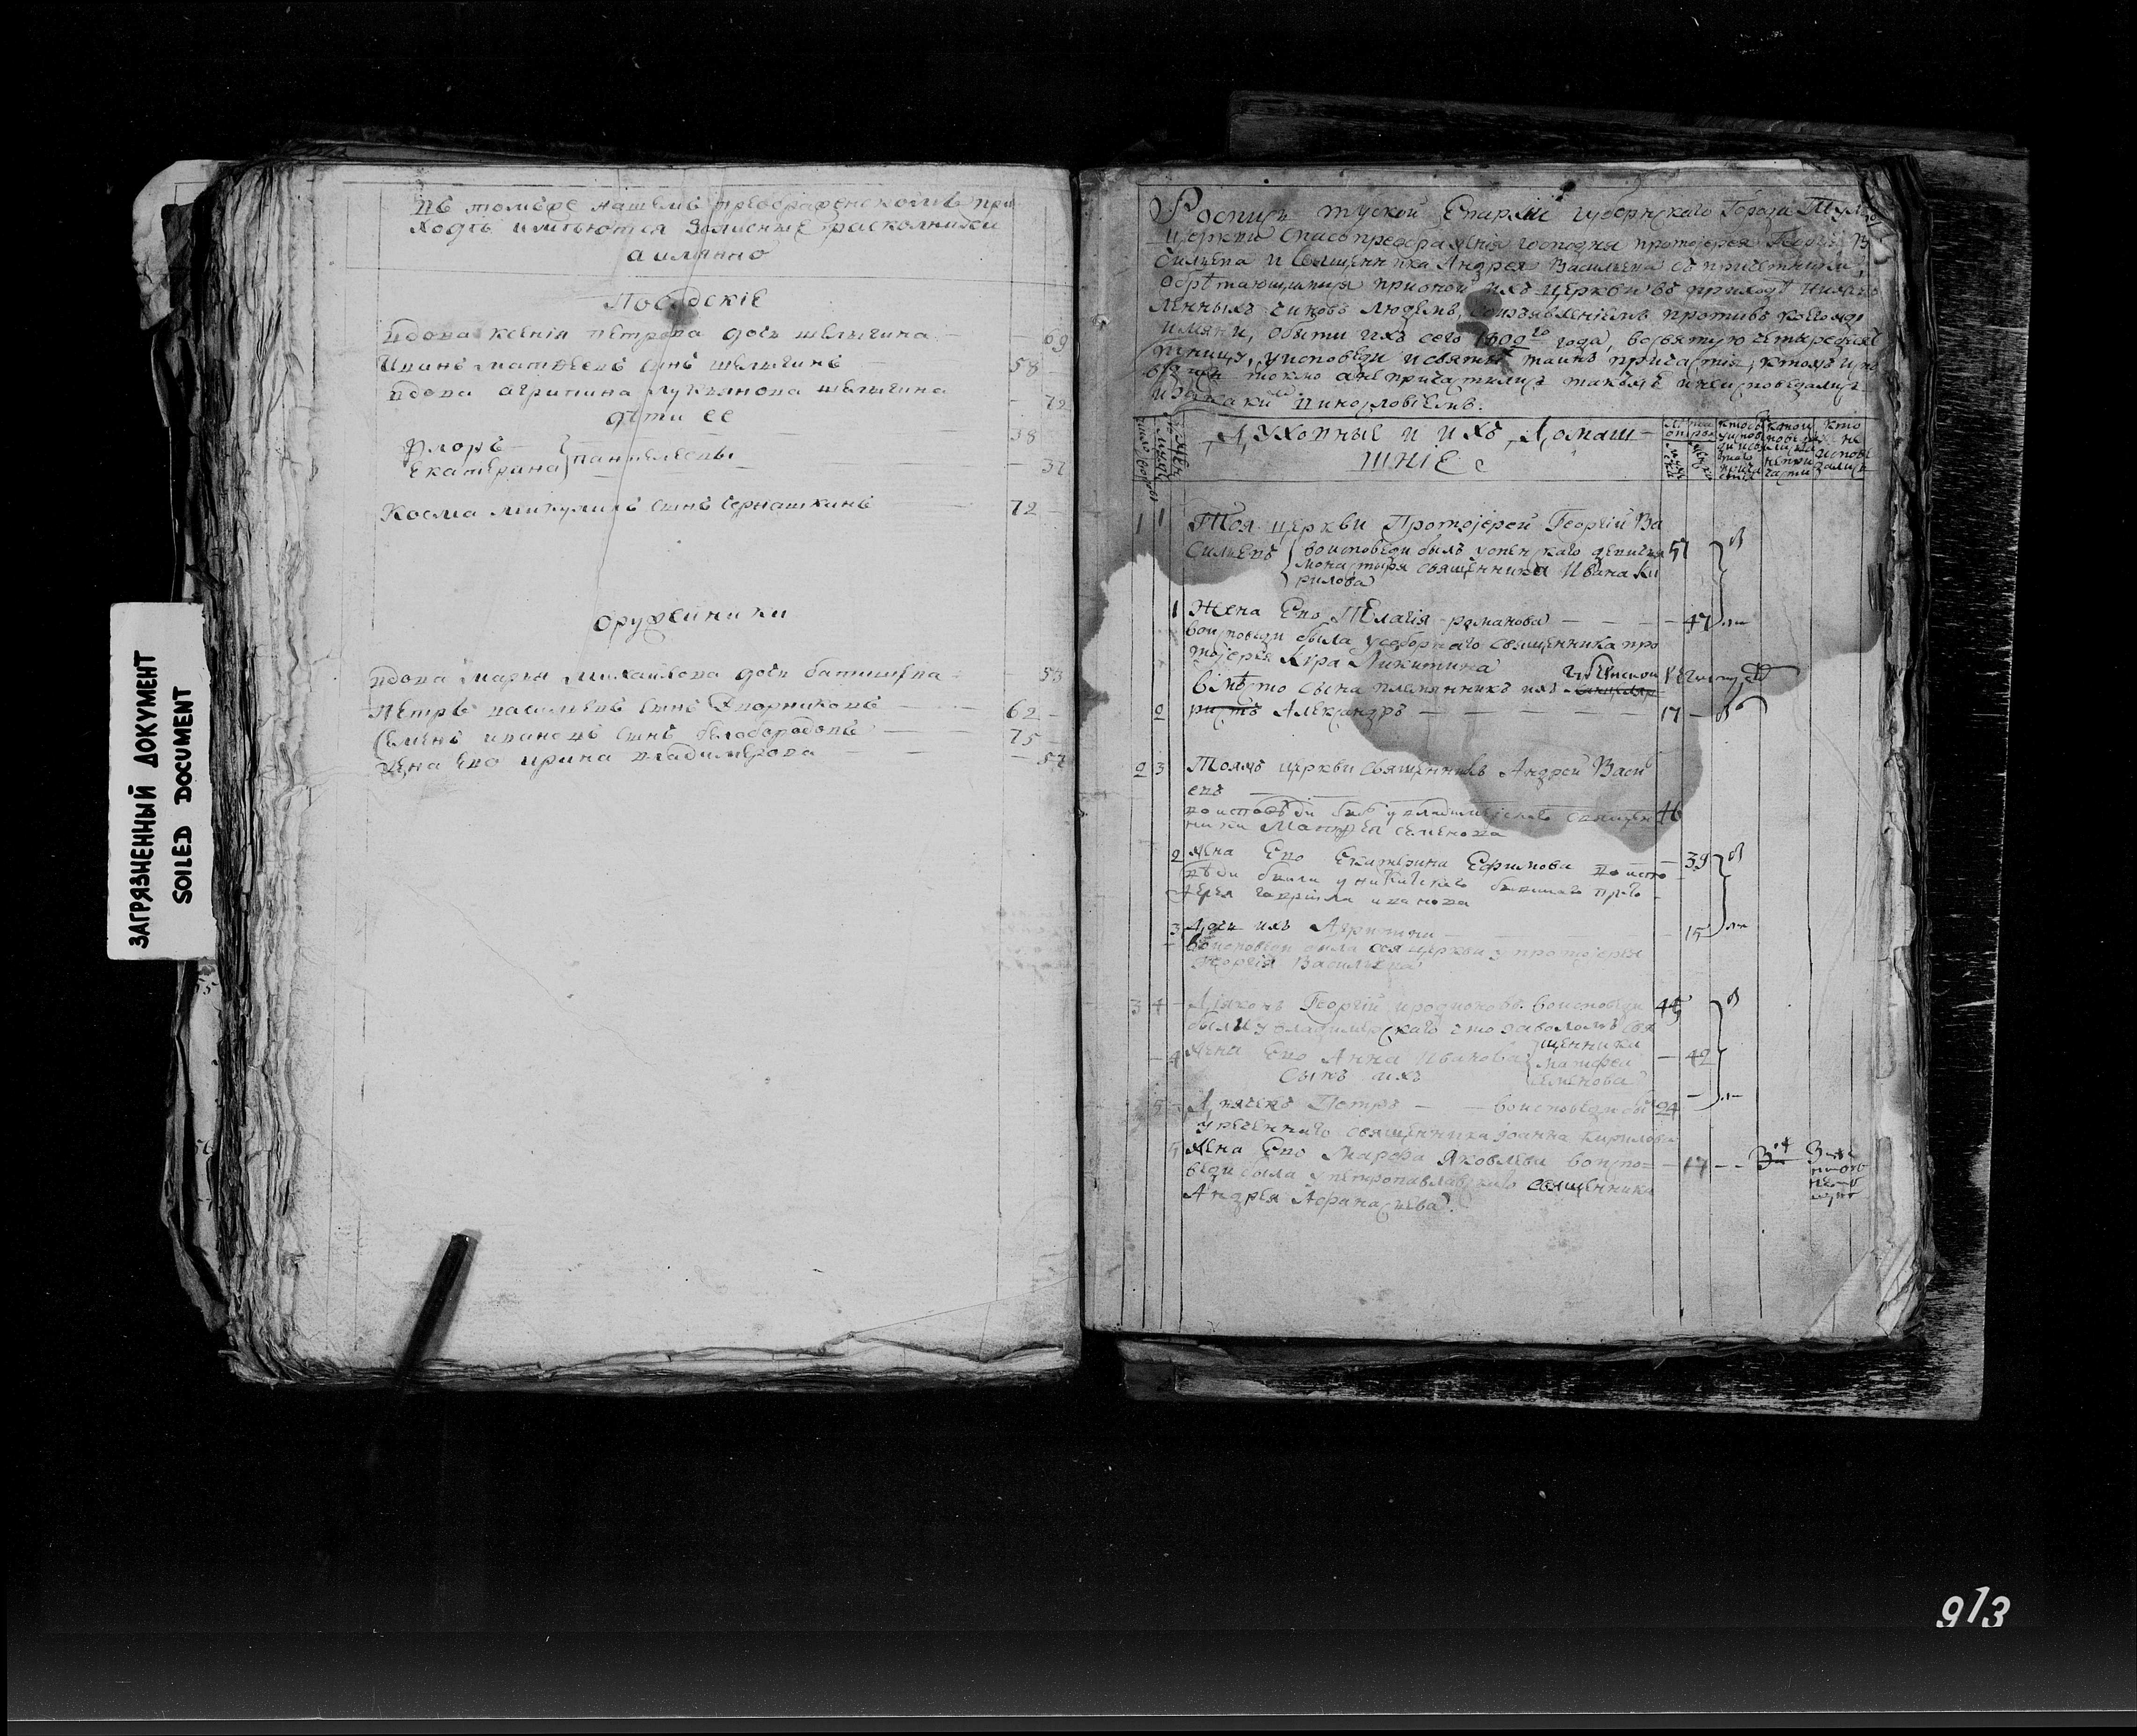 Въ томъже нашемъ преображенскомъ при
ходѣ имѣются Записныѣ раскольники
а имянно
Посадскіе
вдова ксенія петрова дочь шелыгина — 69
Иванъ матвеевъ сынъ шелыгинъ 58
вдова агрипина лукъянова шелыгина — 72
дѣти ее
Флоръ 38
Екатерина } пантелеевы — 37
Косма микулинъ сынъ чернашкинъ — 72
оружейники
вдова марья михайлова дочь батищева — 53
Петръ васильевъ сынъ Дворниковъ — 62
Семенъ ивановъ сынъ белобородовъ — 75
жена ево ирина владимерова — 57
ЗАГРЯЗНЕННЫЙ ДОКУМЕНТ
SOILED DOCUMENT
Роспись тулской Епархіи губернскаго города Тулы
церкви Спасопреображенія господня протоіерея Георгія Ва
сильева и священника Андрея Васильева съ причетники,
обрѣтающимися прионой ихъ церкви въ приходѣ нижеяв
ленныхъ чиновъ людемъ, соизъявленіемъ противъ коегождо
имяни, о бытіи ихъ сего 1800го года, во святую четыредеся
тницу, у исповеди и святыхъ таинъ причастія, и ктожъ испо
ведался токмо а не причастился и такожъ и не исповедались
Духовные и ихъ Домаш-
шніе
1 1 Тоя церкви Протоіерей Георгій Ва
сильевъ { во исповеди былъ успенскаго девичья 57
монастыря священника Ивана Ки
рилова
1 Жена Ево Пелагія романова — 47
во исповеди была у соборнаго священника про
тоіерея Кира Никитина
вместо сына племянникъ ихъ
2 Алекзандръ — 17
2 3 Тояжъ церкви священникъ Андрей Васи
евъ
во исповеди былъ у владимерскаго священ 46
ника Матфея семенова
2 жена Ево Екатерина Ефимова во испо — 39
веди была у никитскаго бывшаго прото
іерея гавріила иванова
3 Дочь ихъ Агрипина — 15
во исповеди была сея церкви у протоіерея
Георгія Васильева
3 4 Діяконъ Георгій иродионовъ во исповеди 45
былъ у владимерскаго что заволомъ свя
4 жена Ево Анна Иванова { щенника — 42
Матфея
Сынъ ихъ семенова
5 Дьячекъ Петръ — во исповеди бы 24
у реченнаго священника іоанна кирилова
5 жена Ево Марфа Яковлева во испо — 17
веди была у петропавлавскаго священника
Андрея Афанасьева.
913